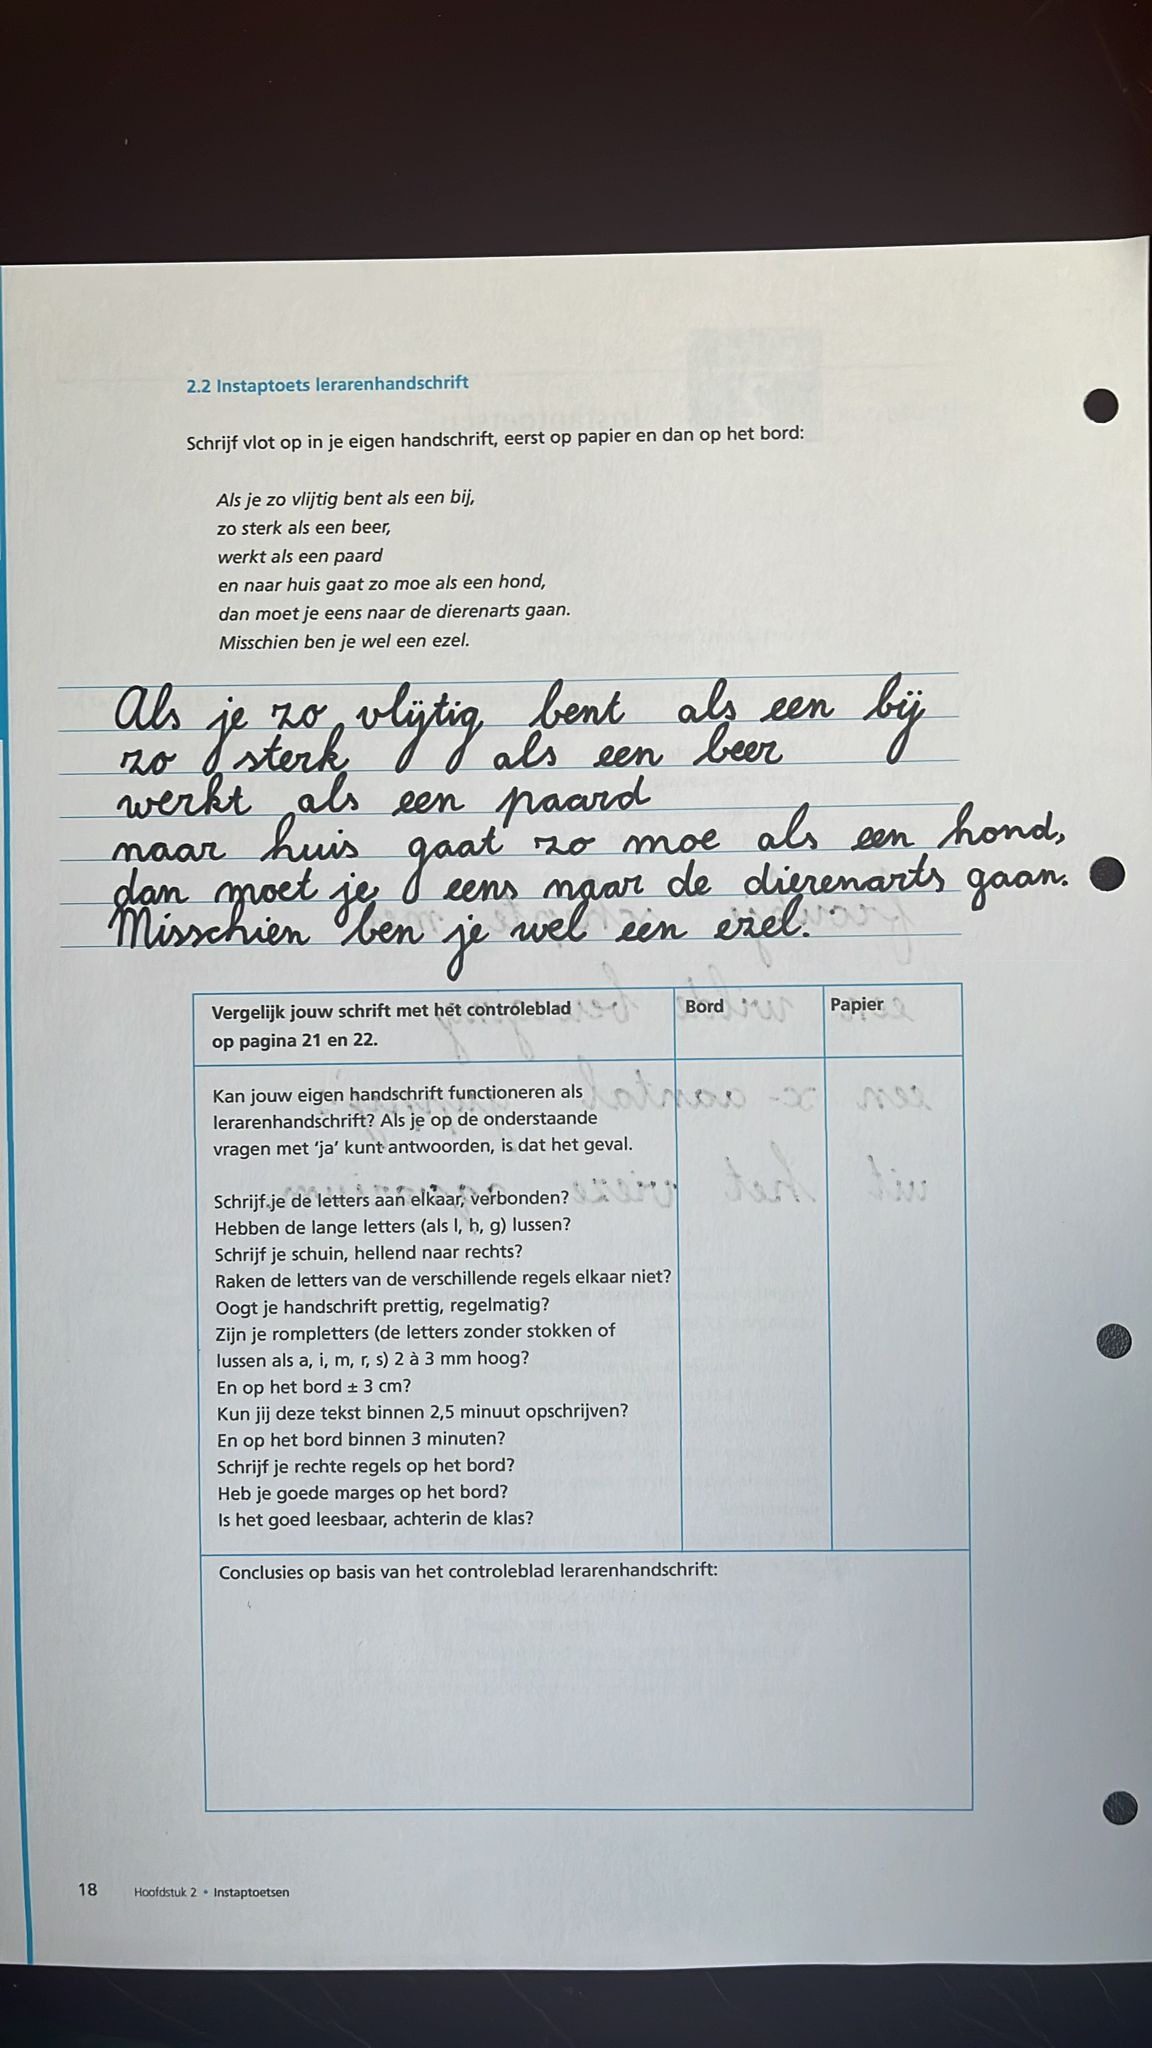 2.2 Instaptoets lerarenhandschrift
Schrijf vlot op in je eigen handschrift, eerst op papier en dan op het bord:
Als je zo vlijtig bent als een bij,
zo sterk als een beer,
werkt als een paard
en naar huis gaat zo moe als een hond,
dan moet je eens naar de dierenarts gaan.
Misschien ben je wel een ezel.
Als je zo vlijtig bent als een bij
zo sterk als een beer
werkt als een paard
naar huis gaat zo moe als een hond,
dan moet je eens naar de dierenarts gaan.
Misschien ben je wel een ezel.
Vergelijk jouw schrift met het controleblad
op pagina 21 en 22.
Bord
Papier
Kan jouw eigen handschrift functioneren als
lerarenhandschrift? Als je op de onderstaande
vragen met ‘ja’ kunt antwoorden, is dat het geval.
Schrijf je de letters aan elkaar, verbonden?
Hebben de lange letters (als l, h, g) lussen?
Schrijf je schuin, hellend naar rechts?
Raken de letters van de verschillende regels elkaar niet?
Oogt je handschrift prettig, regelmatig?
Zijn je rompletters (de letters zonder stokken of
lussen als a, i, m, r, s) 2 à 3 mm hoog?
En op het bord ± 3 cm?
Kun jij deze tekst binnen 2,5 minuut opschrijven?
En op het bord binnen 3 minuten?
Schrijf je rechte regels op het bord?
Heb je goede marges op het bord?
Is het goed leesbaar, achterin de klas?
Conclusies op basis van het controleblad lerarenhandschrift:
18 Hoofdstuk 2 • Instaptoetsen